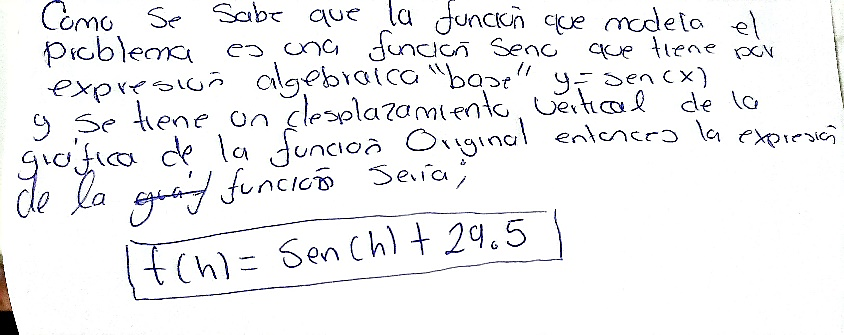 Como se sabe que la función que modela el
problema es una función seno que tiene por
expresión algebraica "base" y=sen(x)
y se tiene un desplazamiento vertical de la
gráfica de la función Original, entonces la expresión
de la función sería;
t(h) = Sen(h) + 29.5